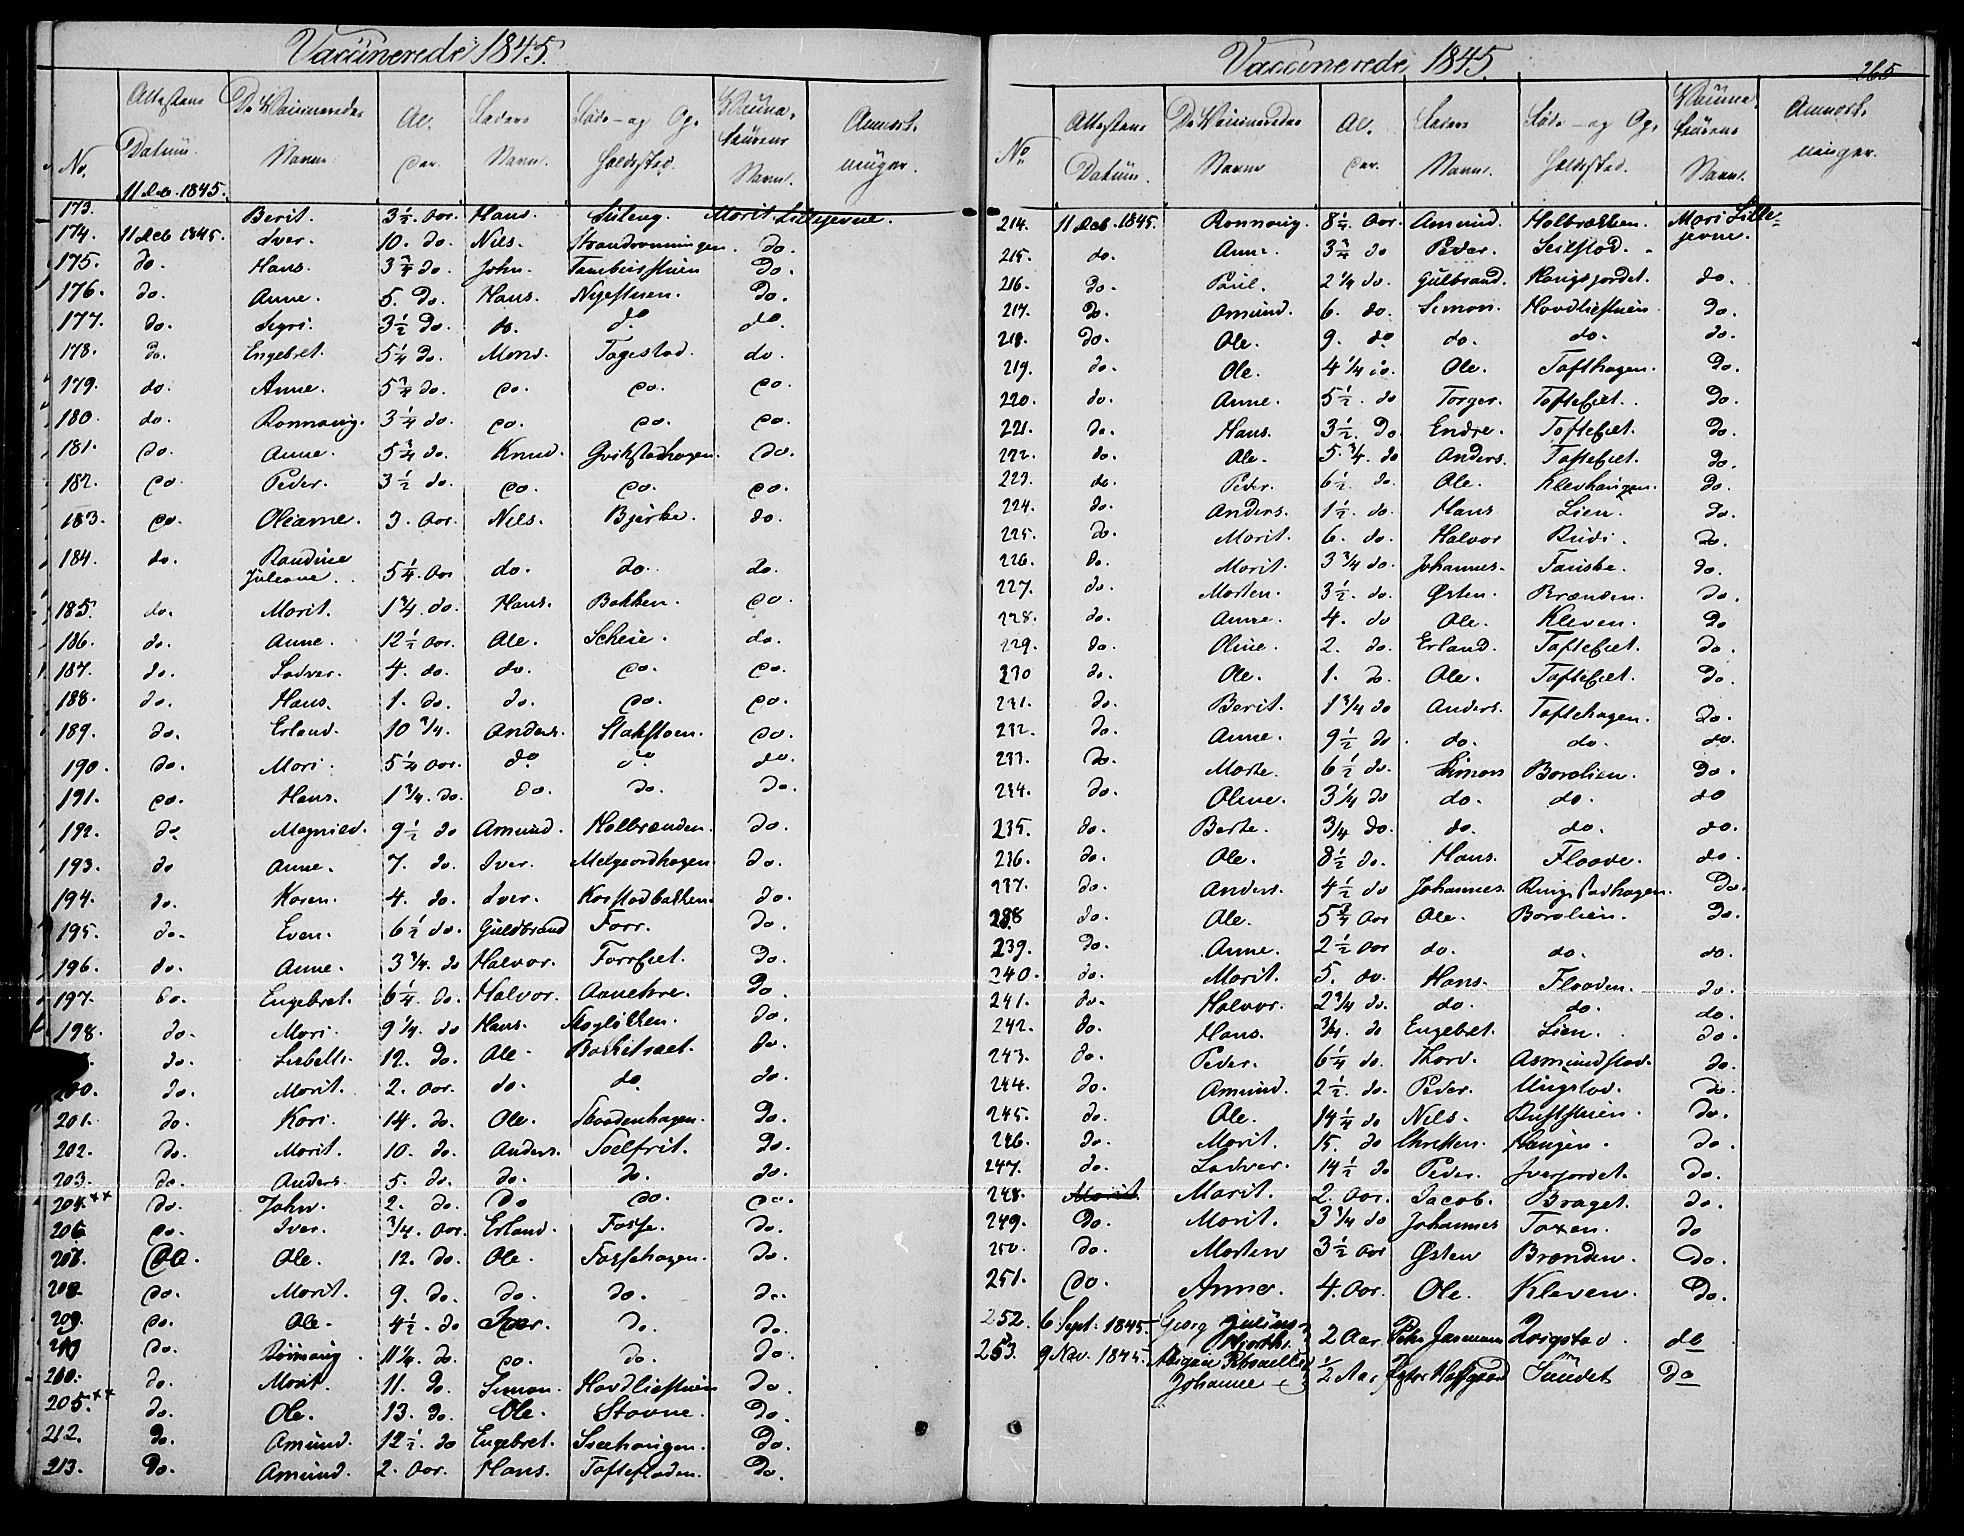 Vaccinerede 1845.
No. Attestens Datum. De Vaccineredes Navne. Al- der. Faders Navn. Føde- og Op- holdssted. Vaccina- teurens Navn. Anmærk- ninger.
173. 11 Dcb. 1845. Berit. 3 1/2. Aar. Hans. Marit Lillejevne.
174. 11 Dcb 1845. Iver. 10. do. Nils. Strandrønningen. do.
175. do. Hans. 3 3/4 do. John. do.
176. do. Anne. 5. do. Hans. Nigestuen. do.
177. do. Sigri. 3 1/2 do. do. do do.
178. do. Engebret. 5 1/4 do. Mons. Tagestad. do.
179. do. Anne. 5 3/4 do. do. do. do.
180. do. Rønnaug. 3 1/4 do. do. do. do.
181. do. Anne. 5 3/4 do. Knud. do.
182. do. Peder. 3 1/2 do. do. do. do.
183. do. Oleane. 3. Aar. Nils. Bjerke. do.
184. do. Randine Juleane. 5 1/4. Aar do. do. do.
185. do. Marit. 1 3/4. do. Hans. Bakken. do.
186. do. Anne. 12 1/2 Aar. Ole. Scheie. do.
187. do. Sødver. 4. do. do. do. do.
188. do. Hans. 1. do. do. do. do.
189. do. Erland. 10 3/4. Anders. Stakstoen. do.
190. do. Mari. 5 1/4 Aar. do do do.
191. do. Hans. 1 3/4. do. do. do. do.
192. do. Magnild. 9 1/2 do Amund. Holbrænden. do.
193. do Anne. 7. do. Iver. Melgaardhagen. do.
194. do. Karen. 4. do. Iver. Korstadbakken. do.
195. do. Even. 6 1/2 do. Guldbrand Forr. do.
196. do. Anne. 3 3/4. do Halvor. Forrful. do.
197. do. Engebret. 6 1/4. do. Halvor. do.
198. do. Mari. 9 1/4. do Hans. do.
do. Lisbeth. 12. do. Ole. do.
200. do. Marit. 2. Aar. do. do. do.
201. do. Kari. 14. do. Ole. Skaadenhagen. do.
202. do. Marit. 10. do. Anders. Soelfrit. do.
203. do. Anders 5. do. do. do. do.
204.** do. John. 2. do. do do. do.
206 do. Iver. 3/4. Aar. Erland. Fosse. do.
do. Ole. 12. do. Ole. Fossehagen. do.
208. do. Marit. 9. do. do. do. do.
209. do. Ole. 4 1/2. do Iver. do. do.
do. Rønnaug 11 1/4. do. do. do. do.
do. Marit. 11. do. Simon. Hovdliestuen do.
205.** do. Ole. 13. do. Ole. Stavne. do.
212. do. Amund. 12 1/2. do Engebret. Sveehaugen. do.
213. do. Amund. 2. Aar. Hans. Toftefladen. do.
Vaccinerede 1845.
265
No Attestens Datum. De Vaccineredes Navne Al- der. Faders Navn. Føde- og Op- holdssted. Vaccina- teurens Navn. Anmærk- ninger.
214. 11 Dcb. 1845. Rønnaug. 8 1/4. Aar. Amund. Holbrækken. Mari Lille-
215. do. Anne. 3 3/4 do Peder. jevne.
216. do. Poul. 2 1/4 do. Gulbrand. Haugsjordet. do.
217. do. Amund. 6. do. Simon. Hovdliestuen do.
218. do. Ole. 9. do do. do. do.
219. do. Ole. 4 1/4 do. Ole. Tofthagen. do.
220. do. Anne. 5 1/2. do Torger. Torfteful. do.
221. do. Hans. 3 1/2. do Endre. Tofteful. do.
222. do. Ole. 5 3/4. do Anders. Tofteful. do.
223. do. Peder. 6 1/2. do. Ole. Klevhaugen. do.
224. do. Anders. 1 1/2. do. Hans Lien. do.
225. do. Marit. 6. do. Halvor Rudi. do.
226. do. Marit. 3 3/4 do. Johannes. do.
227. do. Morten. 3 1/2. do. Østen. Brænden. do.
228. do. Anne. 4. do Ole. Kleven. do
229. do. Oline. 2. do. Erland. Tofteful. do.
230 do. Ole. 1. do. Ole. Tofteful. do.
231. do. Berit. 1 3/4 do Anders. Toftehagen. do.
232. do. Anne. 9 1/2 do. do. do. do.
233. do. Marte. 6 1/2 do. Simon Baralien. do.
234. do. Oline. 3 1/4 do do. do. do
235. do. Berte. 3/4 do. do. do. do.
236. do. Ole. 8 1/2 do. Hans. Flaave. do.
237. do. Anders. 4 1/2 do Johannes. Ringstadhagen. do.
238 do. Ole. 5 3/4 Aar Ole. Baralien. do.
239. do. Anne. 2 1/2 Aar do. do. do.
240. do. Marit. 5. do. Hans. Flaaden. do.
241. do. Halvor. 2 3/4 do. do. do. do.
242. do. Hans. 3/4. do Engebret. Lien. do.
243. do. Peder. 6 1/4 do. Thord. Asmundstad. do.
244. do. Amund. 2 1/2. do. Peder. do.
245. do. Ole. 14 1/4 do Nils. Rustestuen. do.
246. do. Marit. 15. do Christen. Haugen. do.
247. do. Lodver. 14 1/2 do Peder. Iverjordet. do.
248. Marit Marit. 2. Aar. Jacob. Braget. do.
249. do. Marit. 3 1/4 do Johannes Toxen. do
250. do. Morten 3 1/2 Aar Østen Brænden. do.
251. do. Anne. 4. Aar. Ole. Kleven. do.
252. 6 Sept. 1845. Georg Julius Hjorth. 2 Aar. do
253. 9 Nov. 1845. Johanne 1/2 Aar Sundet do